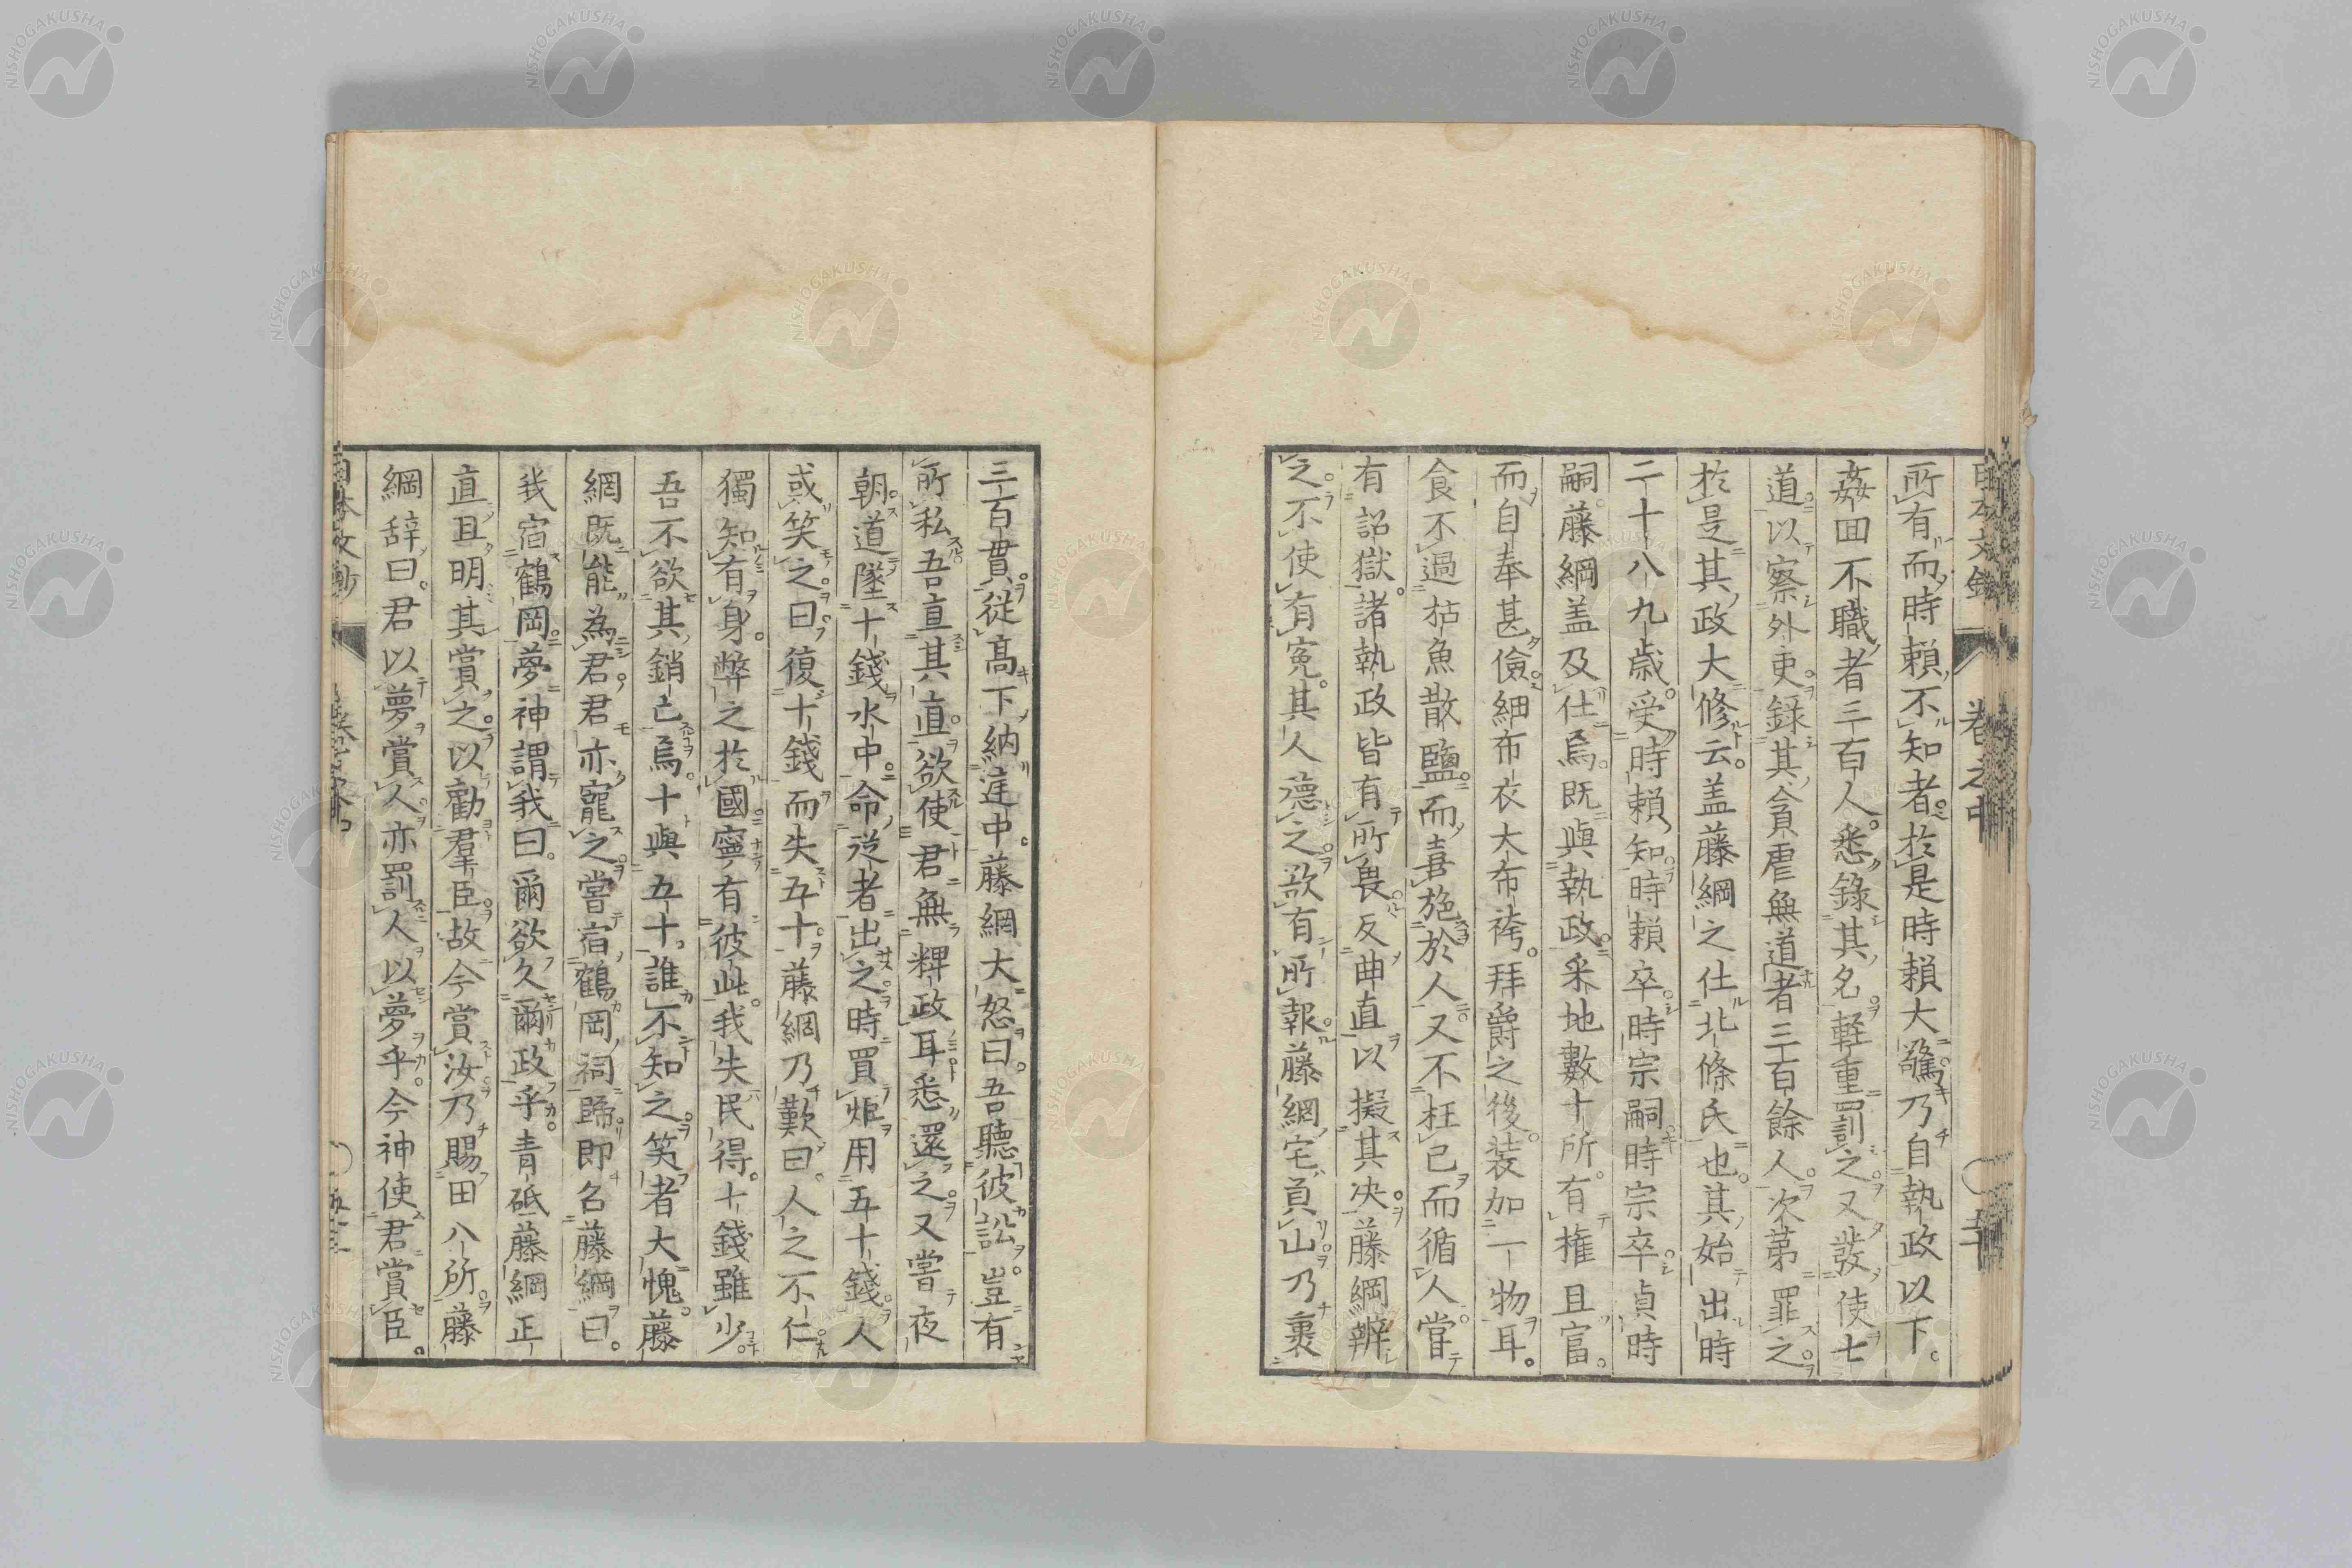 日本文鈔 卷之中
所有而時頼不知者於是時頼大驚乃自執政以下
姦囬不職者三百人悉錄其名軽重罰之又發使七
道以察外吏錄其貪虐無道者三百餘人次苐罪之
於是其政大修云盖藤綱之仕北條氏也其始出時
二十八九歳受時頼知時頼卒時宗嗣時宗卒貞時
嗣藤綱盖及仕焉既與執政釆地數十所有権且富
而自奉甚儉細布衣大布袴拜爵之後装加一物耳
食不過枯魚散鹽而喜施於人又不枉己而循人嘗
有詔獄諸執政皆有所畏反曲直以擬其决藤綱辨
之不使有寃其人德之欲有所報藤綱宅負山乃裹
三百貫從髙下納庭中藤綱大怒曰吾聽彼訟豈有
所私吾直其直欲使君無粃政耳悉還之又嘗夜
朝道墜十錢水中命従者出之時買炬用五十錢人
或笑之曰復十錢而失五十藤綱乃歎曰人之不仁
獨知有身弊之於國寧有彼此我失民得十錢雖少
吾不欲其銷亡焉十與五十誰不知之笑者大愧藤
綱既能為君君亦寵之嘗宿鶴岡祠歸即名藤綱曰
我宿鶴岡夢神謂我曰爾欲久爾政乎青砥藤綱正
直且明其賞之以勸羣臣故今賞汝乃賜田八所藤
綱辞曰君以夢賞人亦罰人以夢乎今神使君賞臣
日本文鈔
NISHOGAKUSHA